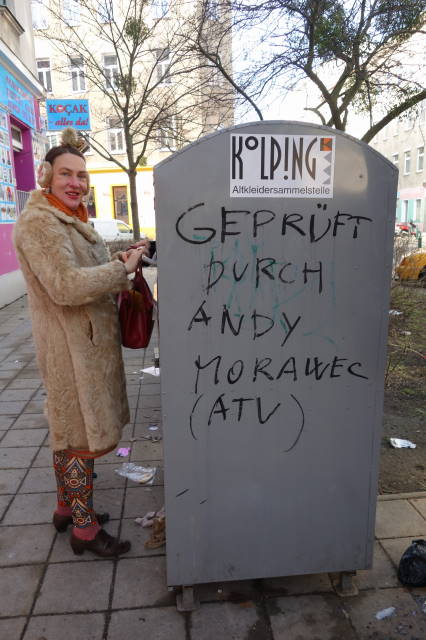 KOÇAK
alles da!
KOLPING
Altkleidersammelstelle
GEPRÜFT
DURCH
ANDY
MORAWEC
(ATV)